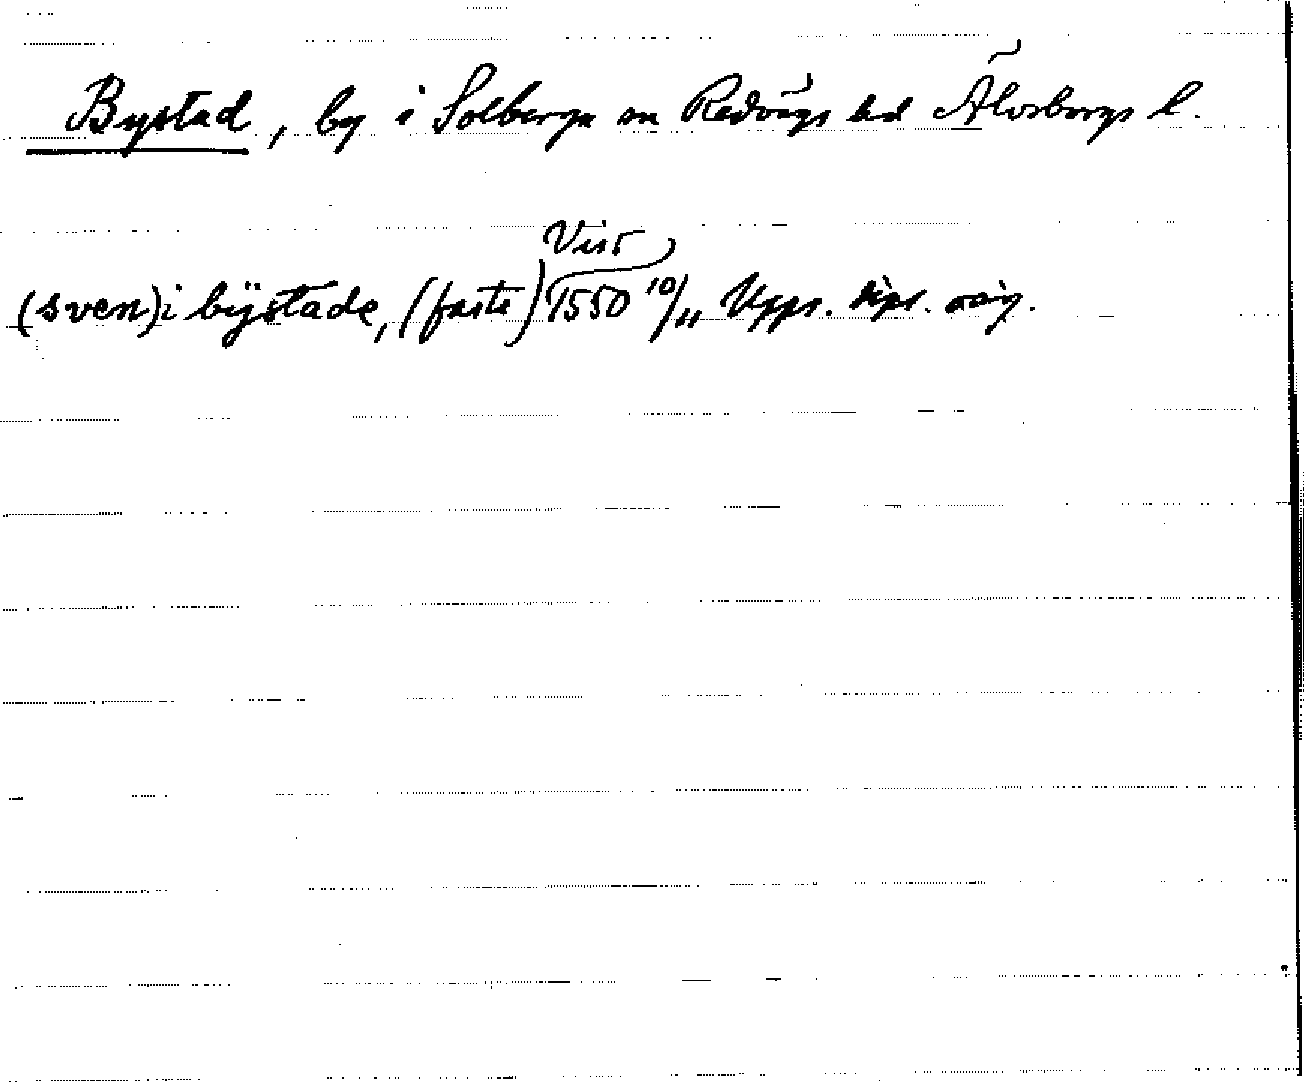 Bystad, by i Solberga sn Redvägs hd Älvsborgs l.
Vist
(sven) i bÿstade, (faste) 1550 10/11 Upps. dipl. orig.